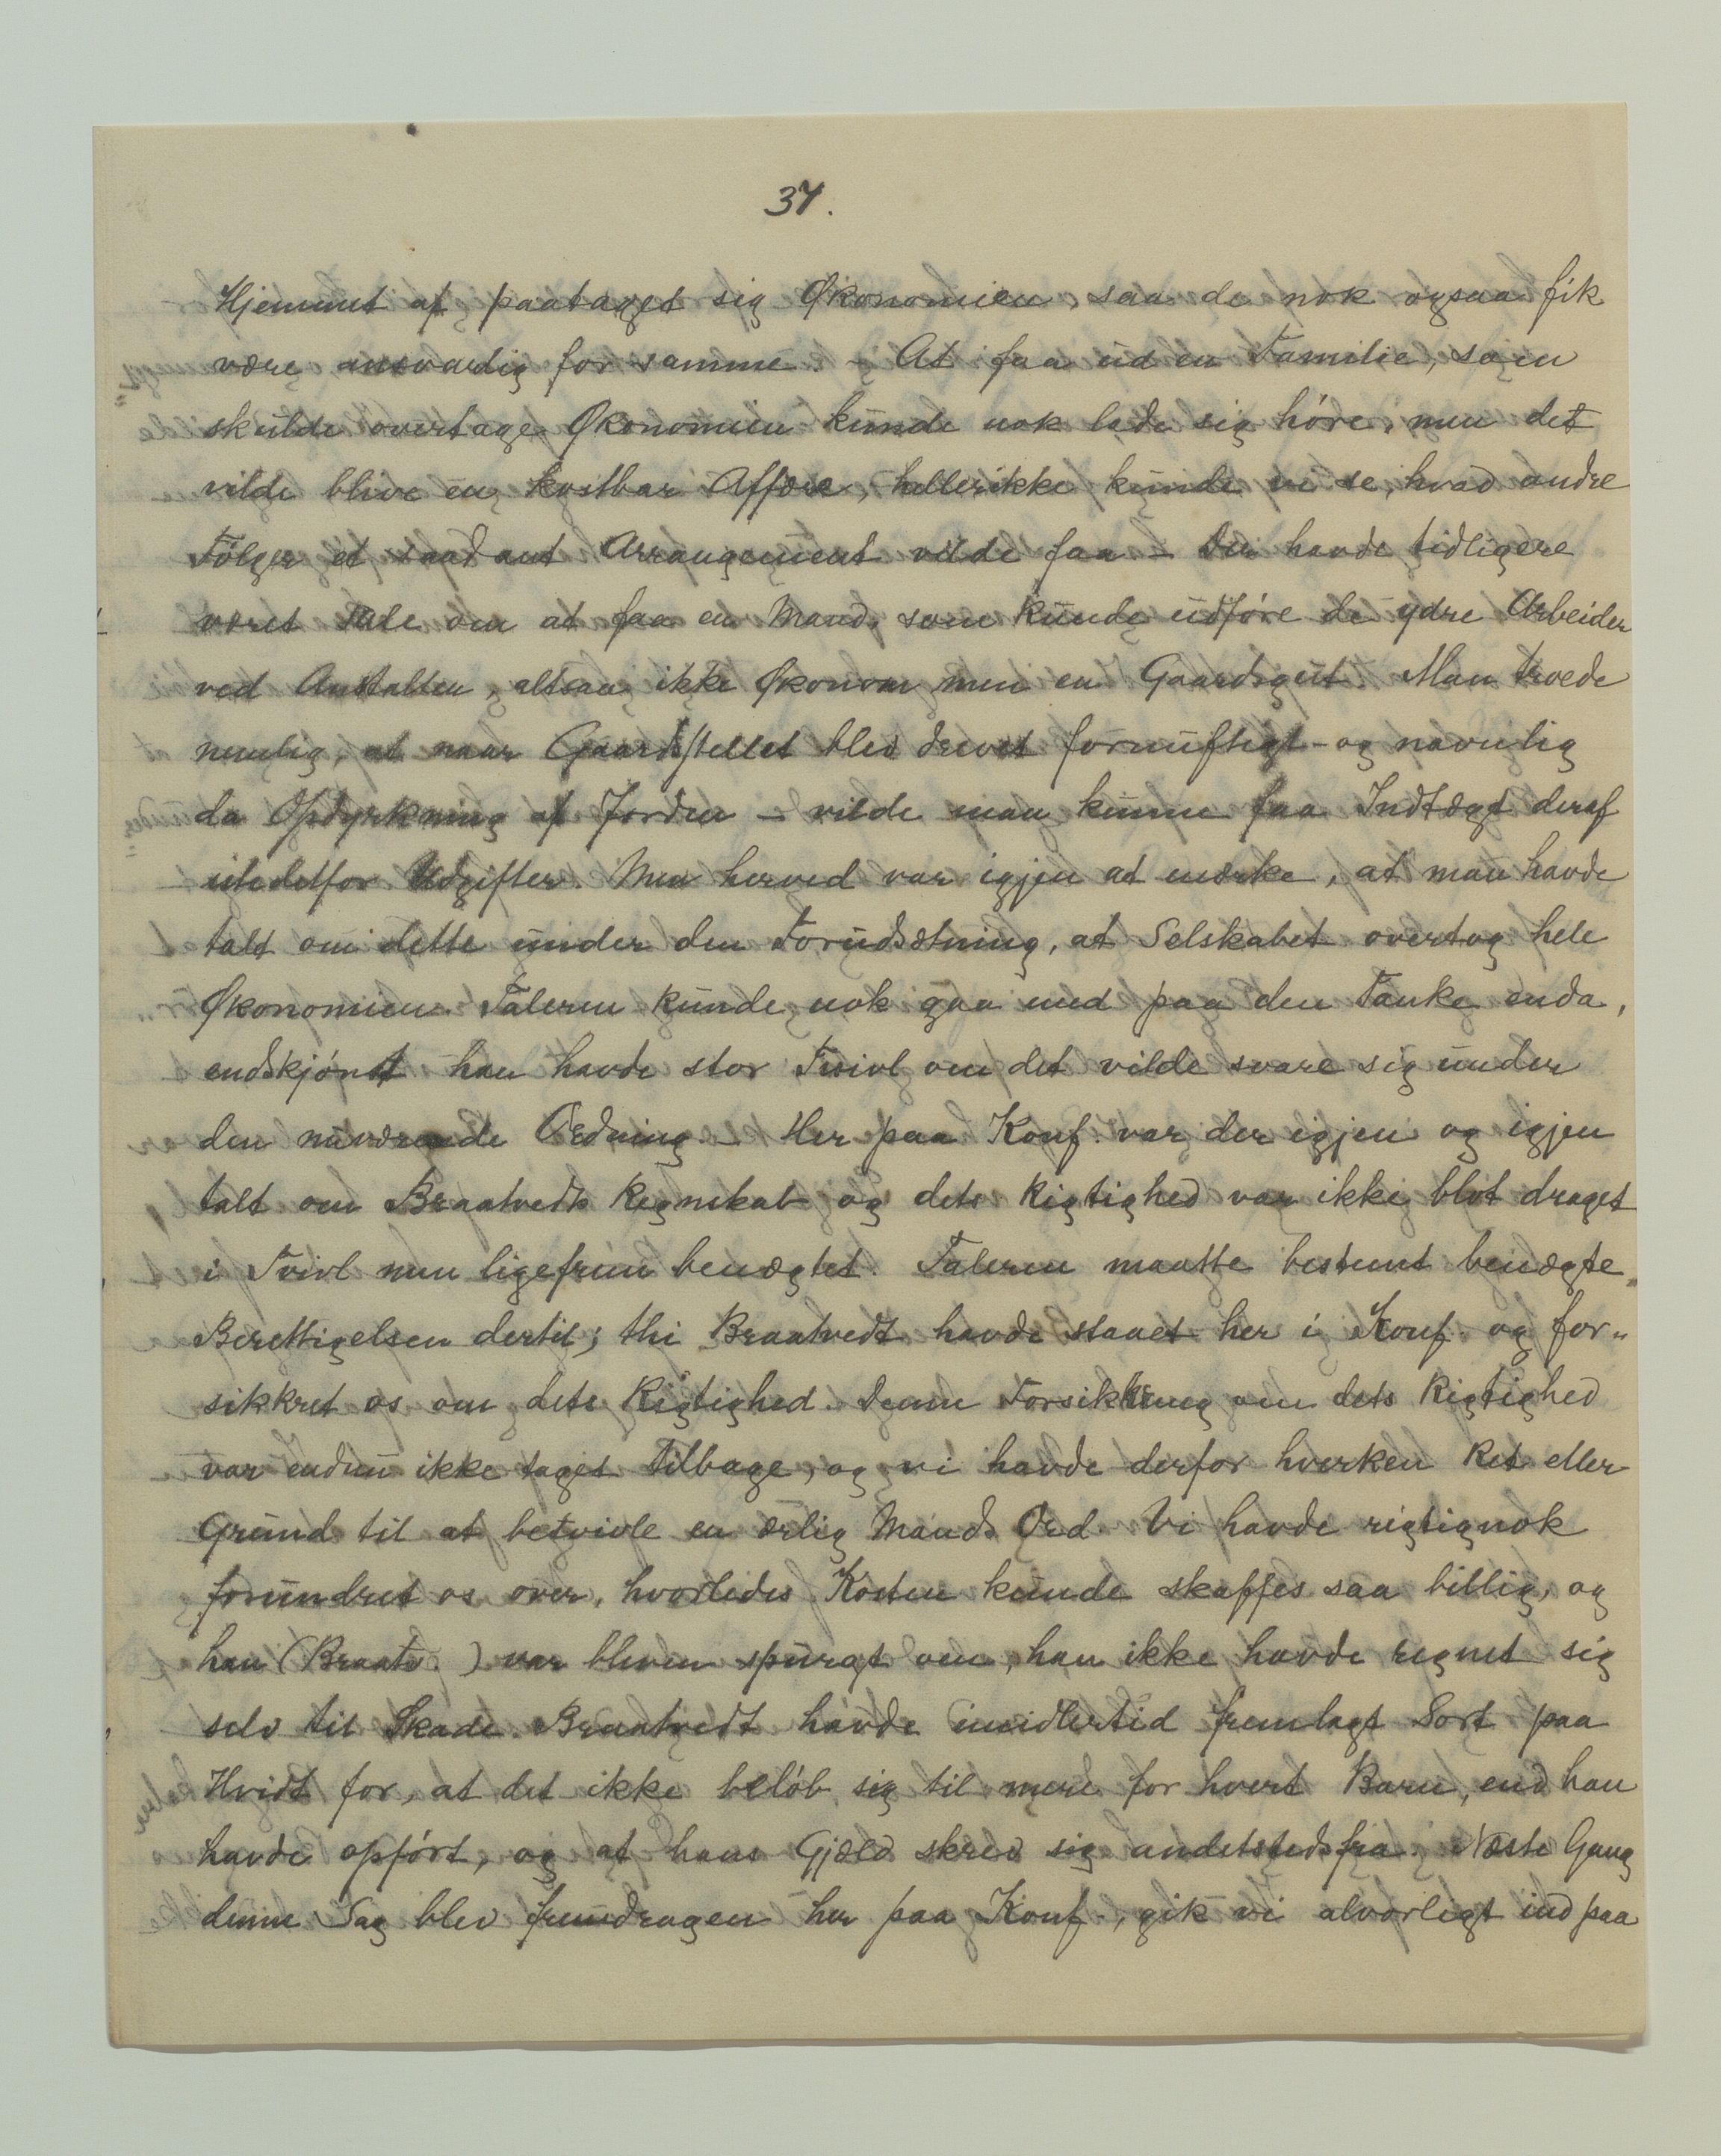 37.
Hjemmet af paataget sig Økonomien, saa de nok ogsaa fik
være ansvarlig for samme. – At faa ud en Familie, som
skulde overtage Økonomien kunde nok lade sig høre, men det
vilde blive en kostbar Affære, hellerikke kunde vi se, hvad andre
Følger et saadant Arrangement vilde faa – Der havde tidligere
været Tale om at faa en Mand, som kunde udføre de ydre Arbeider
ved Anstalten, altsaa ikke Økonom men en Gaardsgut. Man troede
nemlig, at naar Gaardsstellet blev drevet fornuftigt – og navnlig
da Opdyrkning af Jorden – vilde man kunne faa Indtægt deraf
istedetfor Udgifter. Men herved var igjen at mærke, at man havde
talt om dette under den Forudsætning, at Selskabet overtog hele
Økonomien. Taleren kunde nok gaa med paa den Tanke enda,
endskjønt han havde stor Tvivl om det vilde svare sig under
den nuværende Ordning. – Her paa Konf. var der igjen og igjen
talt om Braatvedts Regnskab og dets Rigtighed var ikke blot draget
i Tvivl men ligefrem benægtet. Taleren maatte bestemt benægte
Berettigelsen dertil; thi Braatvedt havde staaet her i Konf. og for„
sikkret os om dets Rigtighed. Denne Forsikkring om dets Rigtighed
var endnu ikke taget tilbage, og vi havde derfor hverken Ret eller
Grund til at betvivle en ærlig Mands Ord. Vi havde rigtignok
forundret os over, hvorledes Kosten kunde skaffes saa billig, og
han (Braatv.) var bleven spurgt om, han ikke havde regnet sig
selv til Skade. Braatvedt havde imidlertid fremlagt Sort paa
Hvidt for, at det ikke beløb sig til mere for hvert Barn, end han
havde opført, og at hans Gjæld skrev sig andetstedsfra. Næste Gang
denne Sag blev fremdragen her paa Konf., gik vi alvorligt ind paa